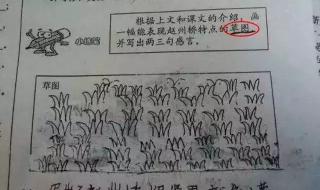 根据上文和课文的介绍,画
一幅能表现赵州桥特点的草图,
并写出两三句感言。
小练笔
草图